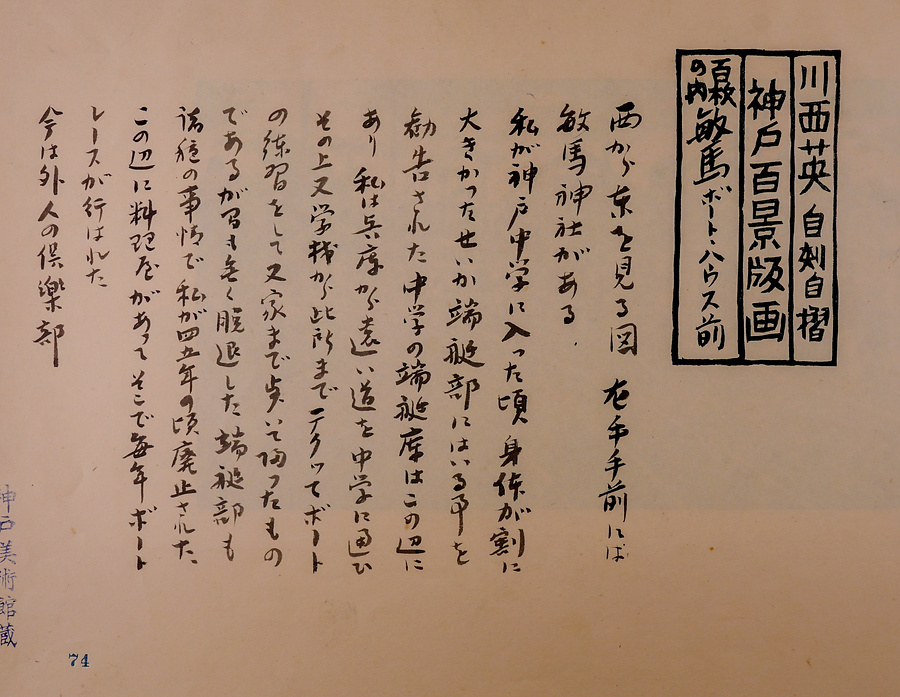 川西英 自刻自摺
神戸百景版画
百枚の内 敏馬ボート・ハウス前
西から東を見る図 右手手前には
敏馬神社がある
私が神戸中学に入った頃身体が割に
大きかったせいか端艇部にはいる事を
勧告された 中学の端艇庫はこの辺に
あり 私は兵庫から遠い道を中学に通ひ
その上又学校から此所までテクってボート
の練習をして又家まで歩いて帰ったもの
であるが間も無く脱退した 端艇部も
諸種の事情で私が四五年の頃廃止された
この辺に料理屋があって そこで毎年ボート
レースが行はれた
今は外人の倶楽部
神戸美術館蔵
74